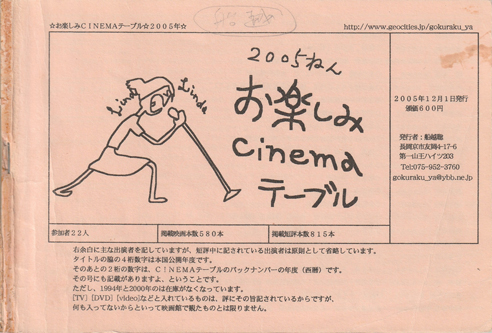 ☆お楽しみCINEMAテーブル☆2005年☆
http://www.geocities.jp/gokuraku_ya
2005ねん
お楽しみ
cinema
テーブル
Linda Linda
2005年12月1日発行
価格600円
発行者:船越聡
長岡京市友岡4-17-6
第一山王ハイツ203
Tel:075-952-3760
gokuraku_ya@ybb.ne.jp
参加者22人
掲載映画本数580本
掲載短評本数815本
右余白に主な出演者を記していますが、短評中に記されている出演者は原則として省略しています。
タイトルの脇の4桁数字は本国公開年度です。
そのあとの2桁の数字は、CINEMAテーブルのバックナンバーの年度(西暦)です。
その号にも記載がありますよ、ということです。
ただし、1994年と2000年のは在庫がなくなっています。
[TV] [DVD] [video]などと入れているものは、評にその旨記されているからですが、
何も入ってないからといって映画館で観たものとは限りません。